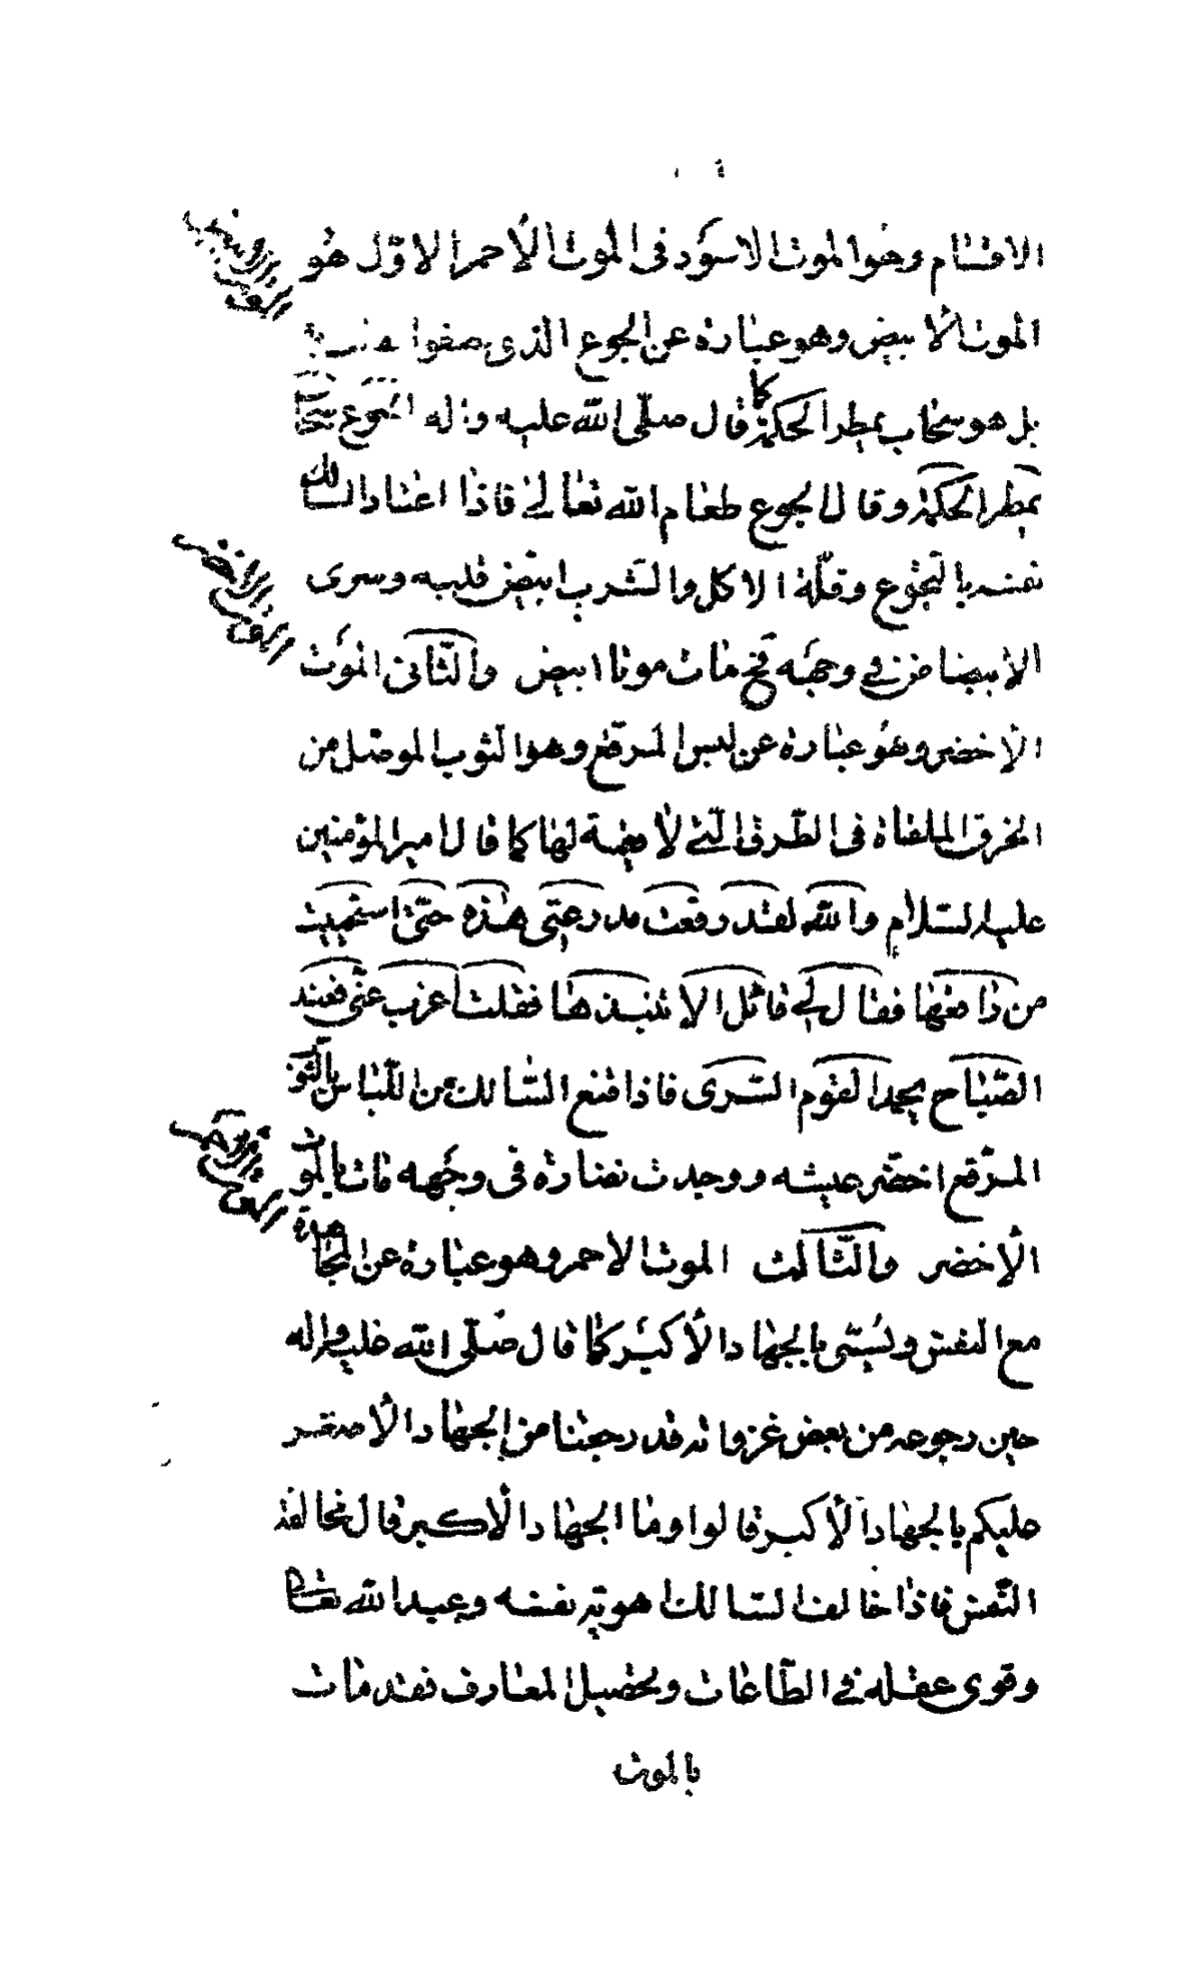 الاقسام وهو الموت الاسود فى الموت الأحمر الاوّل هو
الموت الأبيض وهو عبارة عن الجوع الذى
بل هو سحاب يمطر الحكمة كما قال صلّى اللّه عليه واله الجوع سحاب
يمطر الحكمة وقال الجوع طعام اللّه تعالى فاذا اعتاد السالك
نفسه بالتجوع وقلّة الاكل والشرب ابيضّ قلبه وسرى
الابيضاض فى وجهه فح مات موتا ابيض والثّانى الموت
الأخضر وهو عبارة عن لبس المرقّع وهو الثوب الموصّل من
الخرق الملقاة فى الطّرق الّتى لا قيمة لها كما قال امير المؤمنين
عليه السّلام واللّه لقد رقعت مدرعتى هذه حتّى استحييت
من راقعها فقال لى قائل الا تنبذها فقلت أعزب عنّى فعند
الصّباح يحمد القوم السّرى فاذا قنع السّالك من اللّباس بالثوب
المرقّع اخضّر عيشه ووجدت نضارة فى وجهه مات بالموت
الأخضر والثّالث الموت الاحمر وهو عبارة عن المجاهدة
مع النفس ويسمّى بالجهاد الأكبر كما قال صلّى اللّه عليه واله
حين رجوعه من بعض غزواته قد رجعنا من الجهاد الأصغر
عليكم بالجهاد الأكبر قالوا وما الجهاد الأكبر قال مخالفة
النّفس فاذا خالف السّالك هويّة نفسه وعبد اللّه تعالى
وقوى عقله فى الطّاعات وتحصيل المعارف فقد مات
بالموت
الموت الابيض
الموت الاخضر
الموت الاحمر